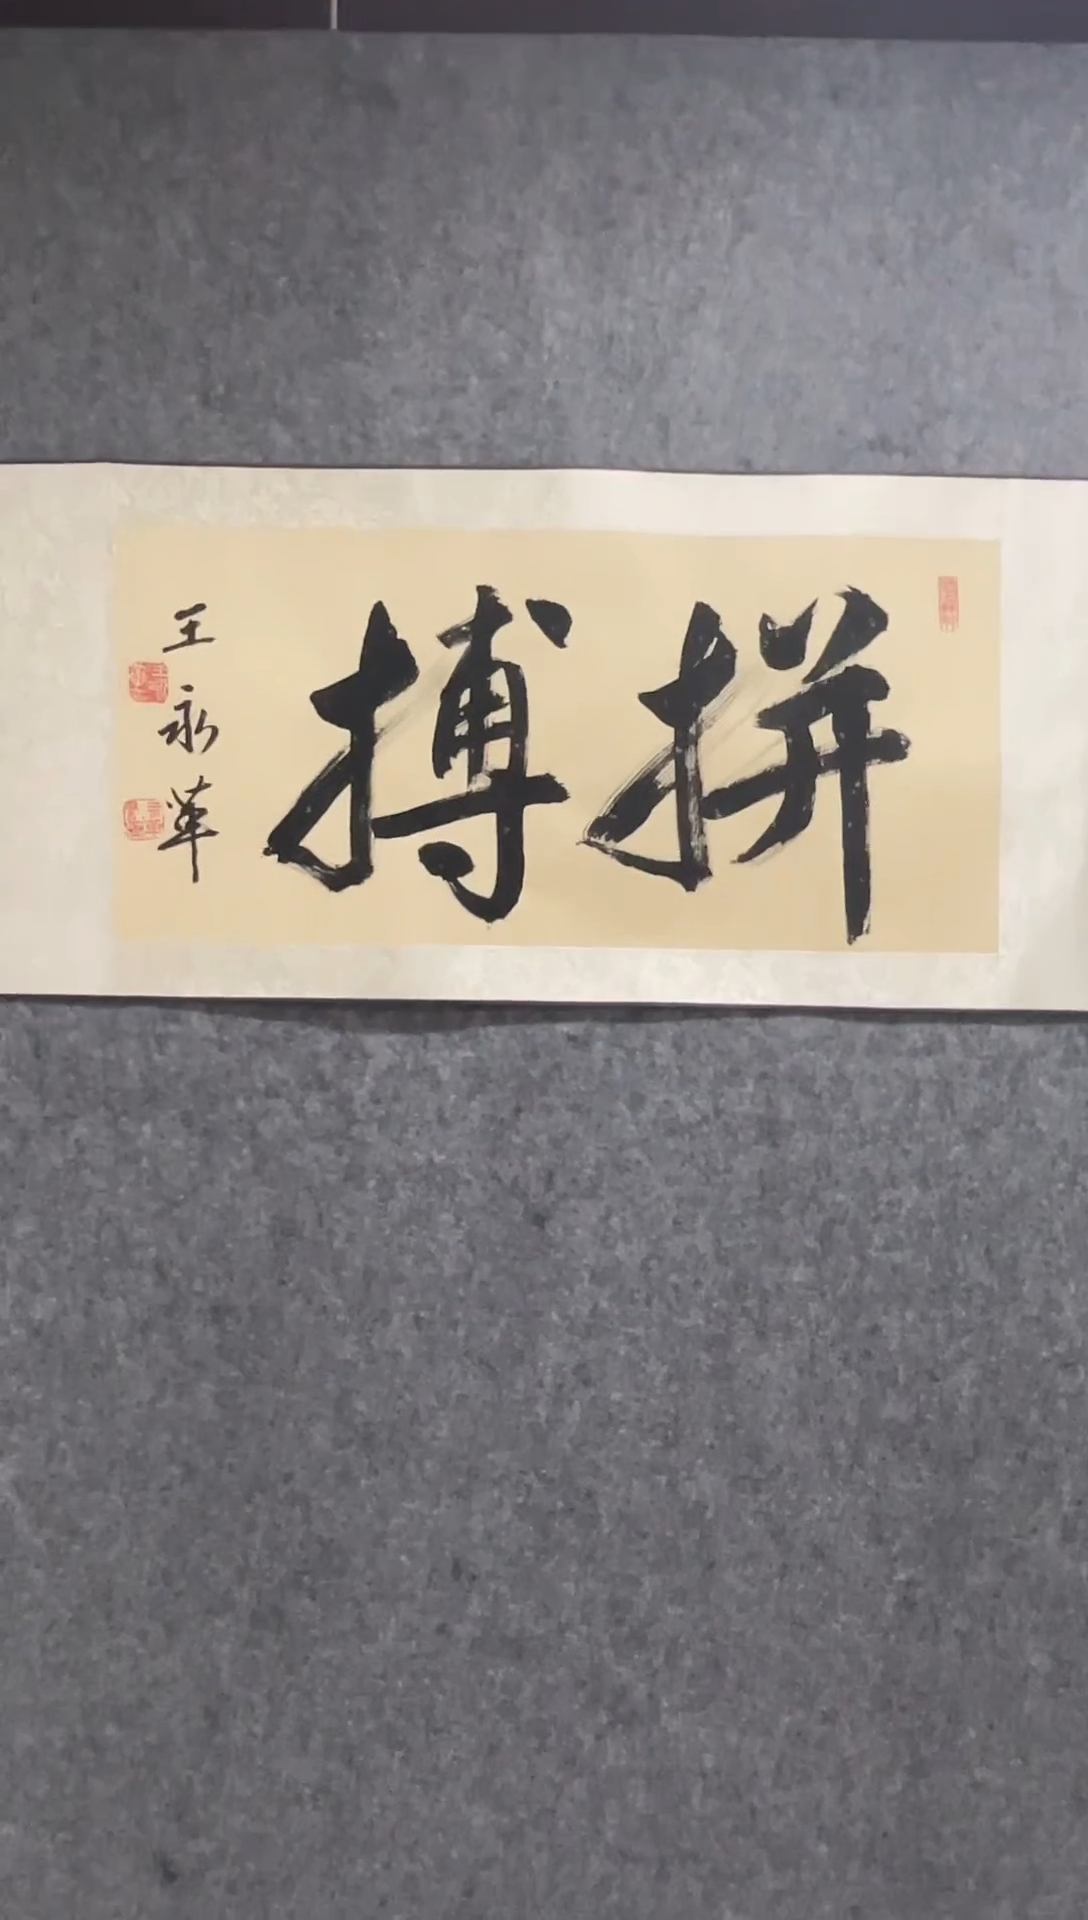 拼搏
王永革